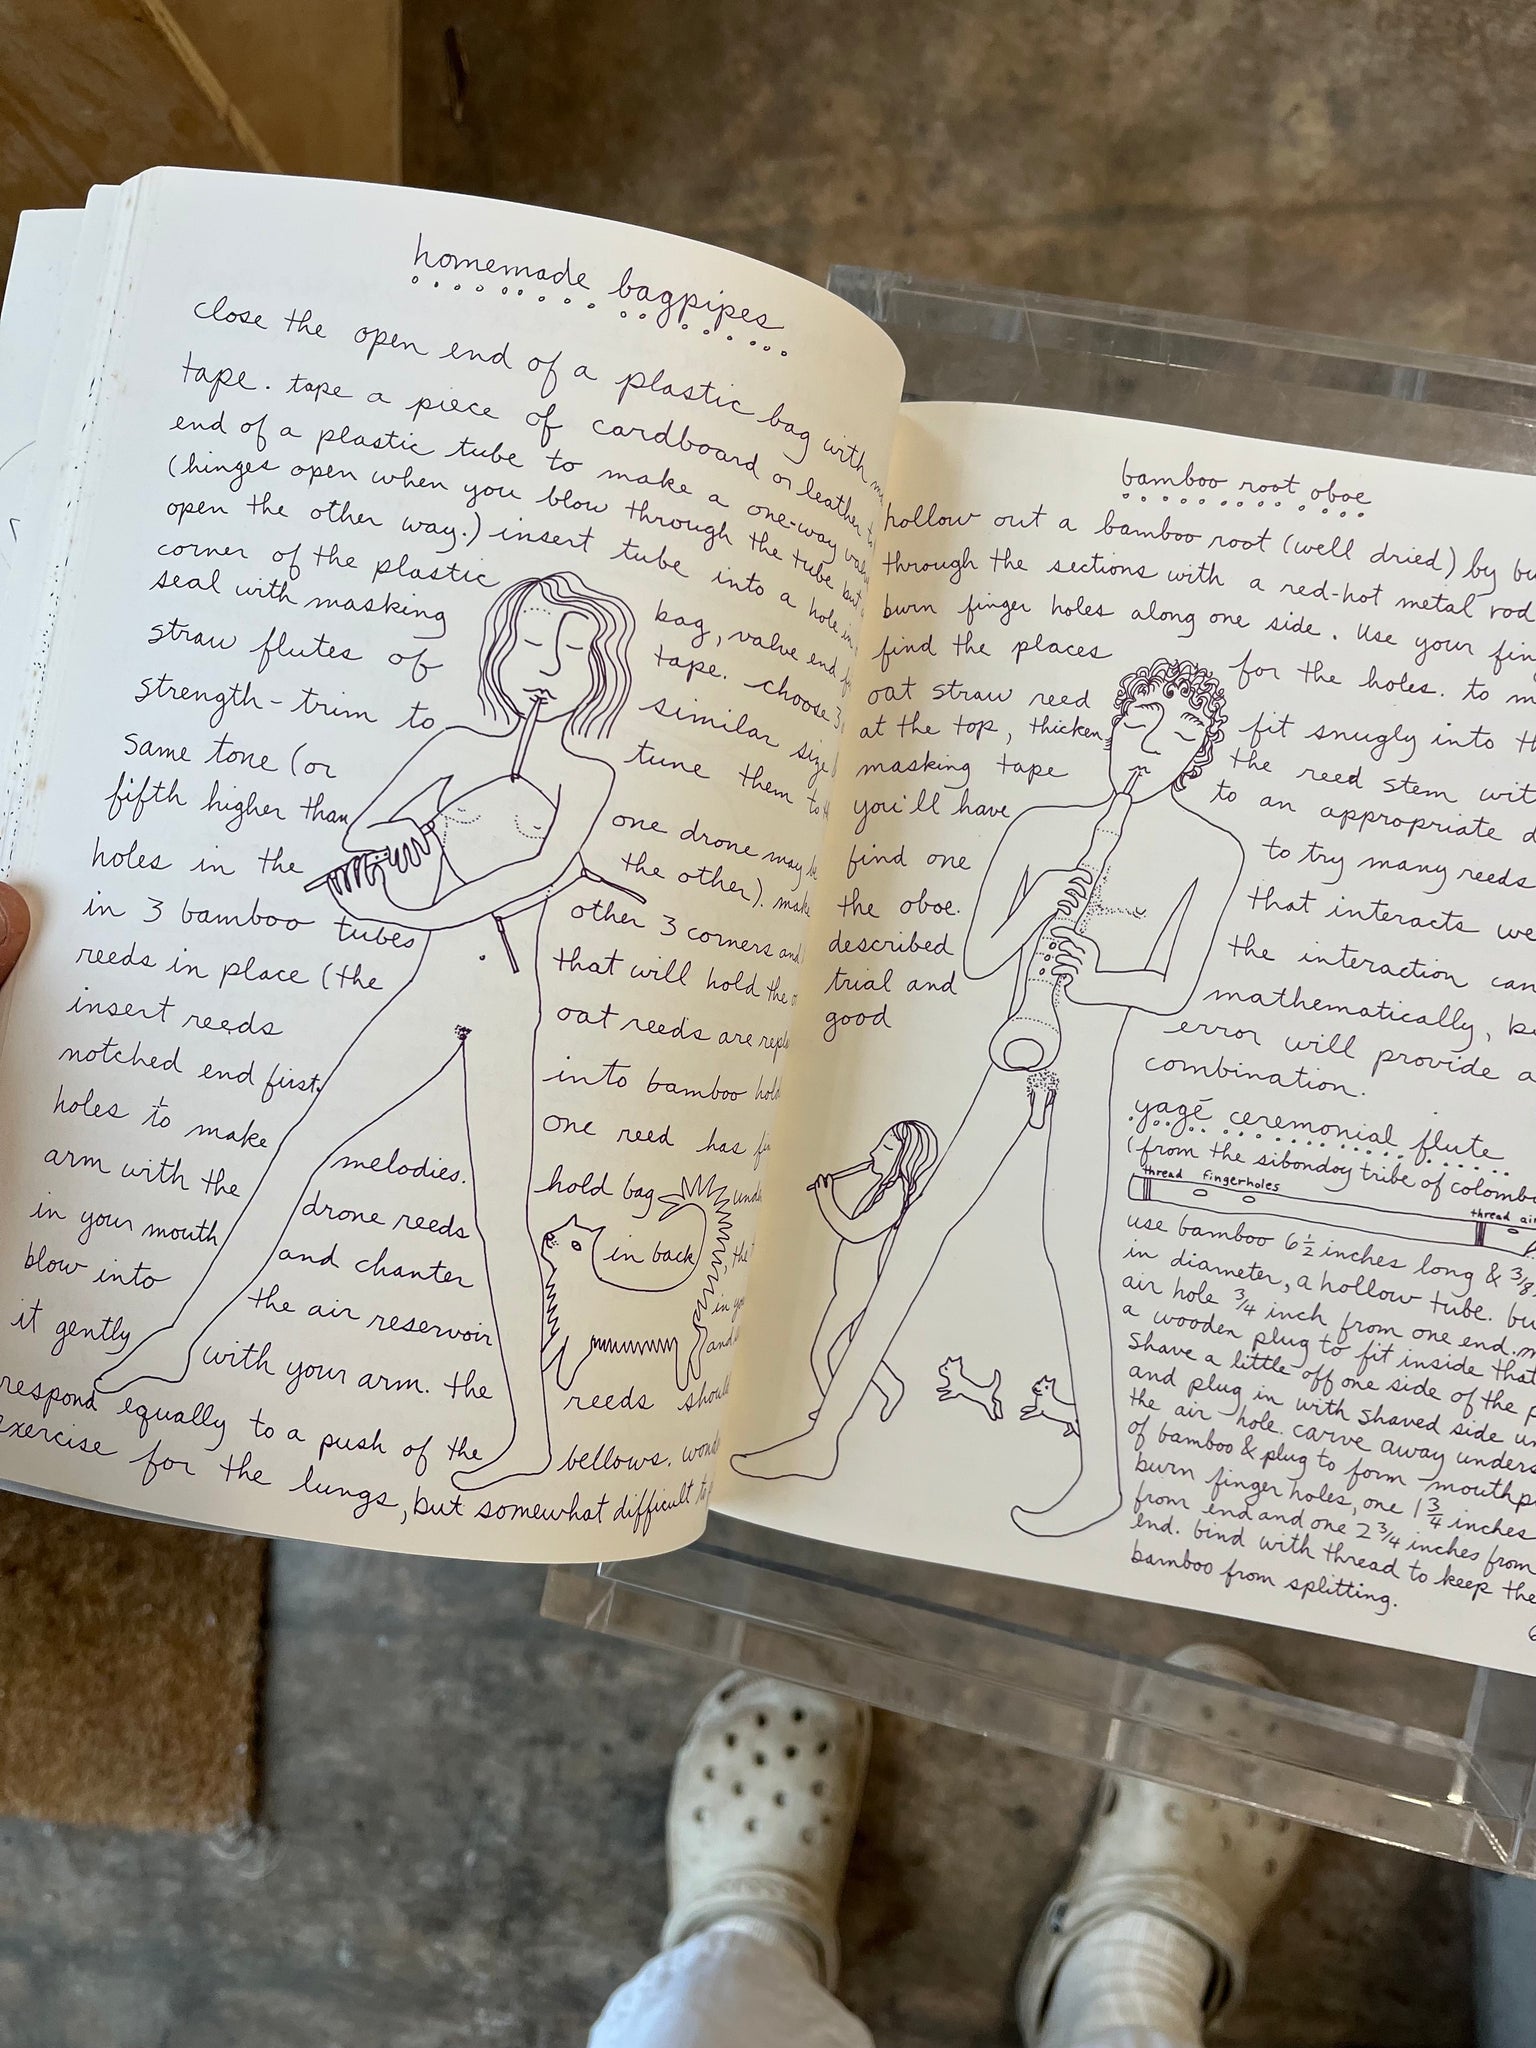 homemade bagpipes
close the open end of a plastic bag with
tape. tape a piece of cardboard or leather
end of a plastic tube to make a one-way
(hinges open when you blow through the tube but
open the other way.) insert tube into a hole in
corner of the plastic bag, valve end
seal with masking tape. choose 3
straw flutes of similar size
strength - trim to tune them to
same tone (or one drone may be
fifth higher than the other). make
holes in the other 3 corners and
in 3 bamboo tubes that will hold the
reeds in place (the oat reeds are
insert reeds into bamboo
notched end first. one reed has
holes to make melodies. hold bag
arm with the drone reeds in back
in your mouth and chanter
blow into the air reservoir
it gently with your arm. the reeds should
respond equally to a push of the bellows.
exercise for the lungs, but somewhat difficult
bamboo root oboe
hollow out a bamboo root (well dried) by
through the sections with a red-hot metal rod
burn finger holes along one side. use your
find the places for the holes. to
oat straw reed fit snugly into
at the top, thicken the reed stem
masking tape to an appropriate
you'll have to try many reeds
find one that interacts
the oboe. the interaction can
described mathematically,
trial and error will provide a
good combination.
yagé ceremonial flute
(from the sibondoy tribe of
thread fingerholes
thread
use bamboo 6 1/2 inches long & 3/8
in diameter, a hollow tube.
air hole 3/4 inch from one end.
a wooden plug to fit inside that
shave a little off one side of the
and plug in with shaved side
the air hole. carve away
of bamboo & plug to form
burn finger holes, one 1 3/4 inches
from end and one 2 3/4 inches from
end. bind with thread to keep the
bamboo from splitting.